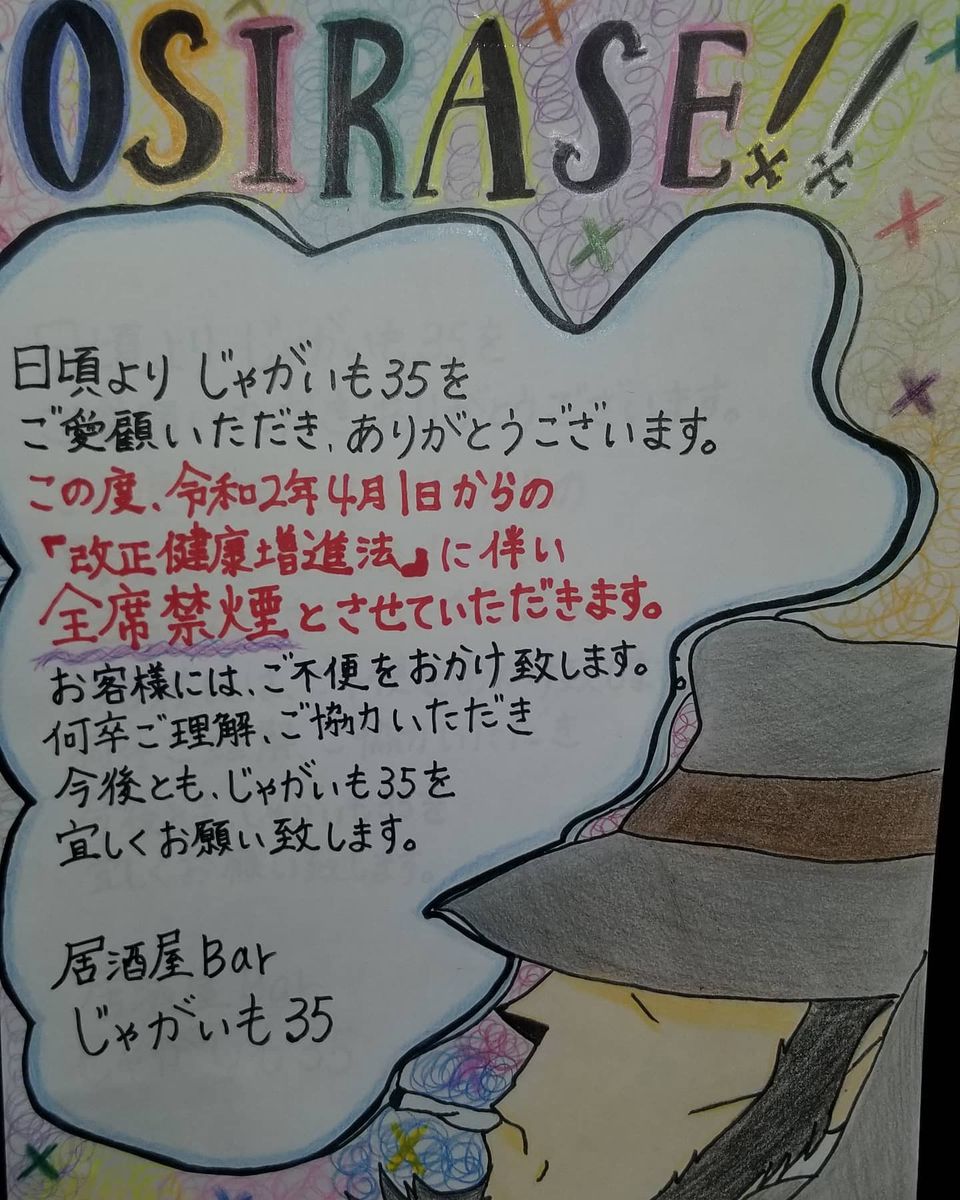 OSIRASE!!
日頃より じゃがいも35を
ご愛顧いただき、ありがとうございます。
この度、令和2年4月1日からの
『改正健康増進法』に伴い
全席禁煙とさせていただきます。
お客様には、ご不便をおかけ致します。
何卒ご理解、ご協力いただき
今後とも、じゃがいも35を
宜しくお願い致します。
居酒屋Bar
じゃがいも35